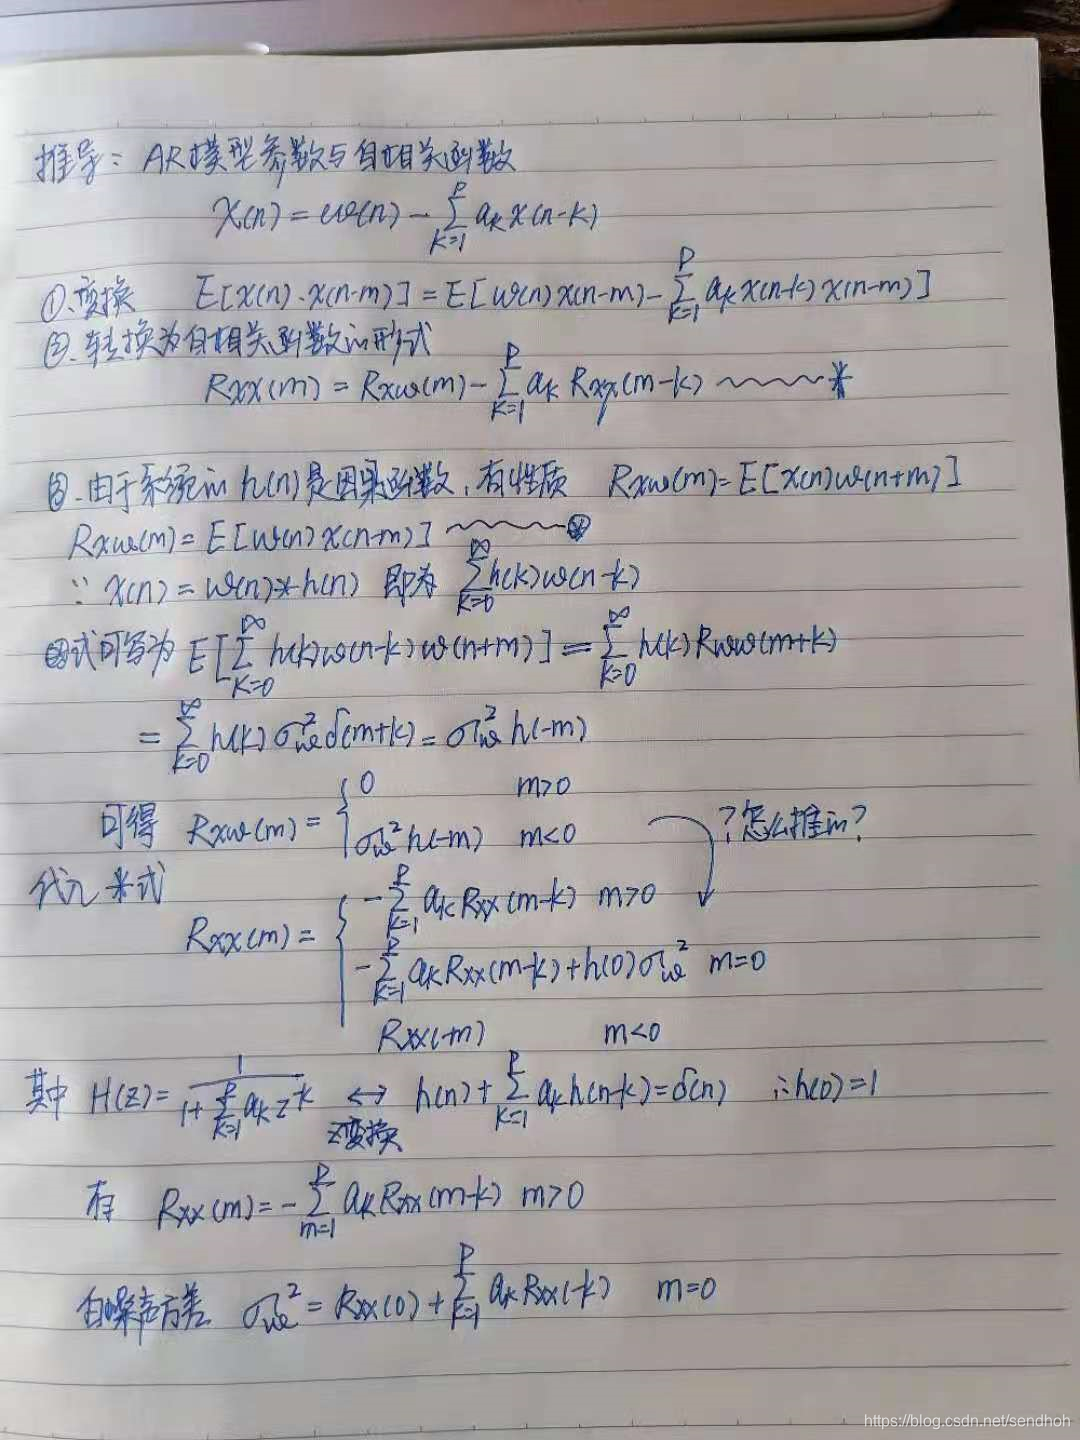 推导：AR模型参数与自相关函数
x(n) = w(n) - \sum_{k=1}^{p} a_k x(n-k)
①.变换 E[x(n)·x(n-m)] = E[w(n)x(n-m) - \sum_{k=1}^{p} a_k x(n-k) x(n-m)]
②.转换为自相关函数的形式
Rxx(m) = Rxw(m) - \sum_{k=1}^{p} a_k Rxx(m-k) ~~~~ *
③.由于系统的h(n)是因果函数,有性质 Rxw(m)=E[x(n)w(n+m)]
Rxw(m) = E[w(n)x(n-m)] ~~~~ ⊛
∵ x(n) = w(n)*h(n) 即为 \sum_{k=0}^{∞} h(k)w(n-k)
⊛式可写为 E[\sum_{k=0}^{∞} h(k)w(n-k)w(n+m)] = \sum_{k=0}^{∞} h(k)Rww(m+k)
= \sum_{k=0}^{∞} h(k) σ_w^2 δ(m+k) = σ_w^2 h(-m)
可得 Rxw(m) = { 0 m>0
σ_w^2 h(-m) m<0 ?怎么推的?
代入*式
Rxx(m) = { -\sum_{k=1}^{p} a_k Rxx(m-k) m>0
-\sum_{k=1}^{p} a_k Rxx(m-k)+h(0)σ_w^2 m=0
Rxx(-m) m<0
其中 H(z) = \frac{1}{1+\sum_{k=1}^{p} a_k z^{-k}} ↔ h(n) + \sum_{k=1}^{p} a_k h(n-k)=δ(n) ∴h(0)=1
z变换
有 Rxx(m) = -\sum_{m=1}^{p} a_k Rxx(m-k) m>0
白噪声方差 σ_w^2 = Rxx(0) + \sum_{k=1}^{p} a_k Rxx(-k) m=0
https://blog.csdn.net/sendhoh